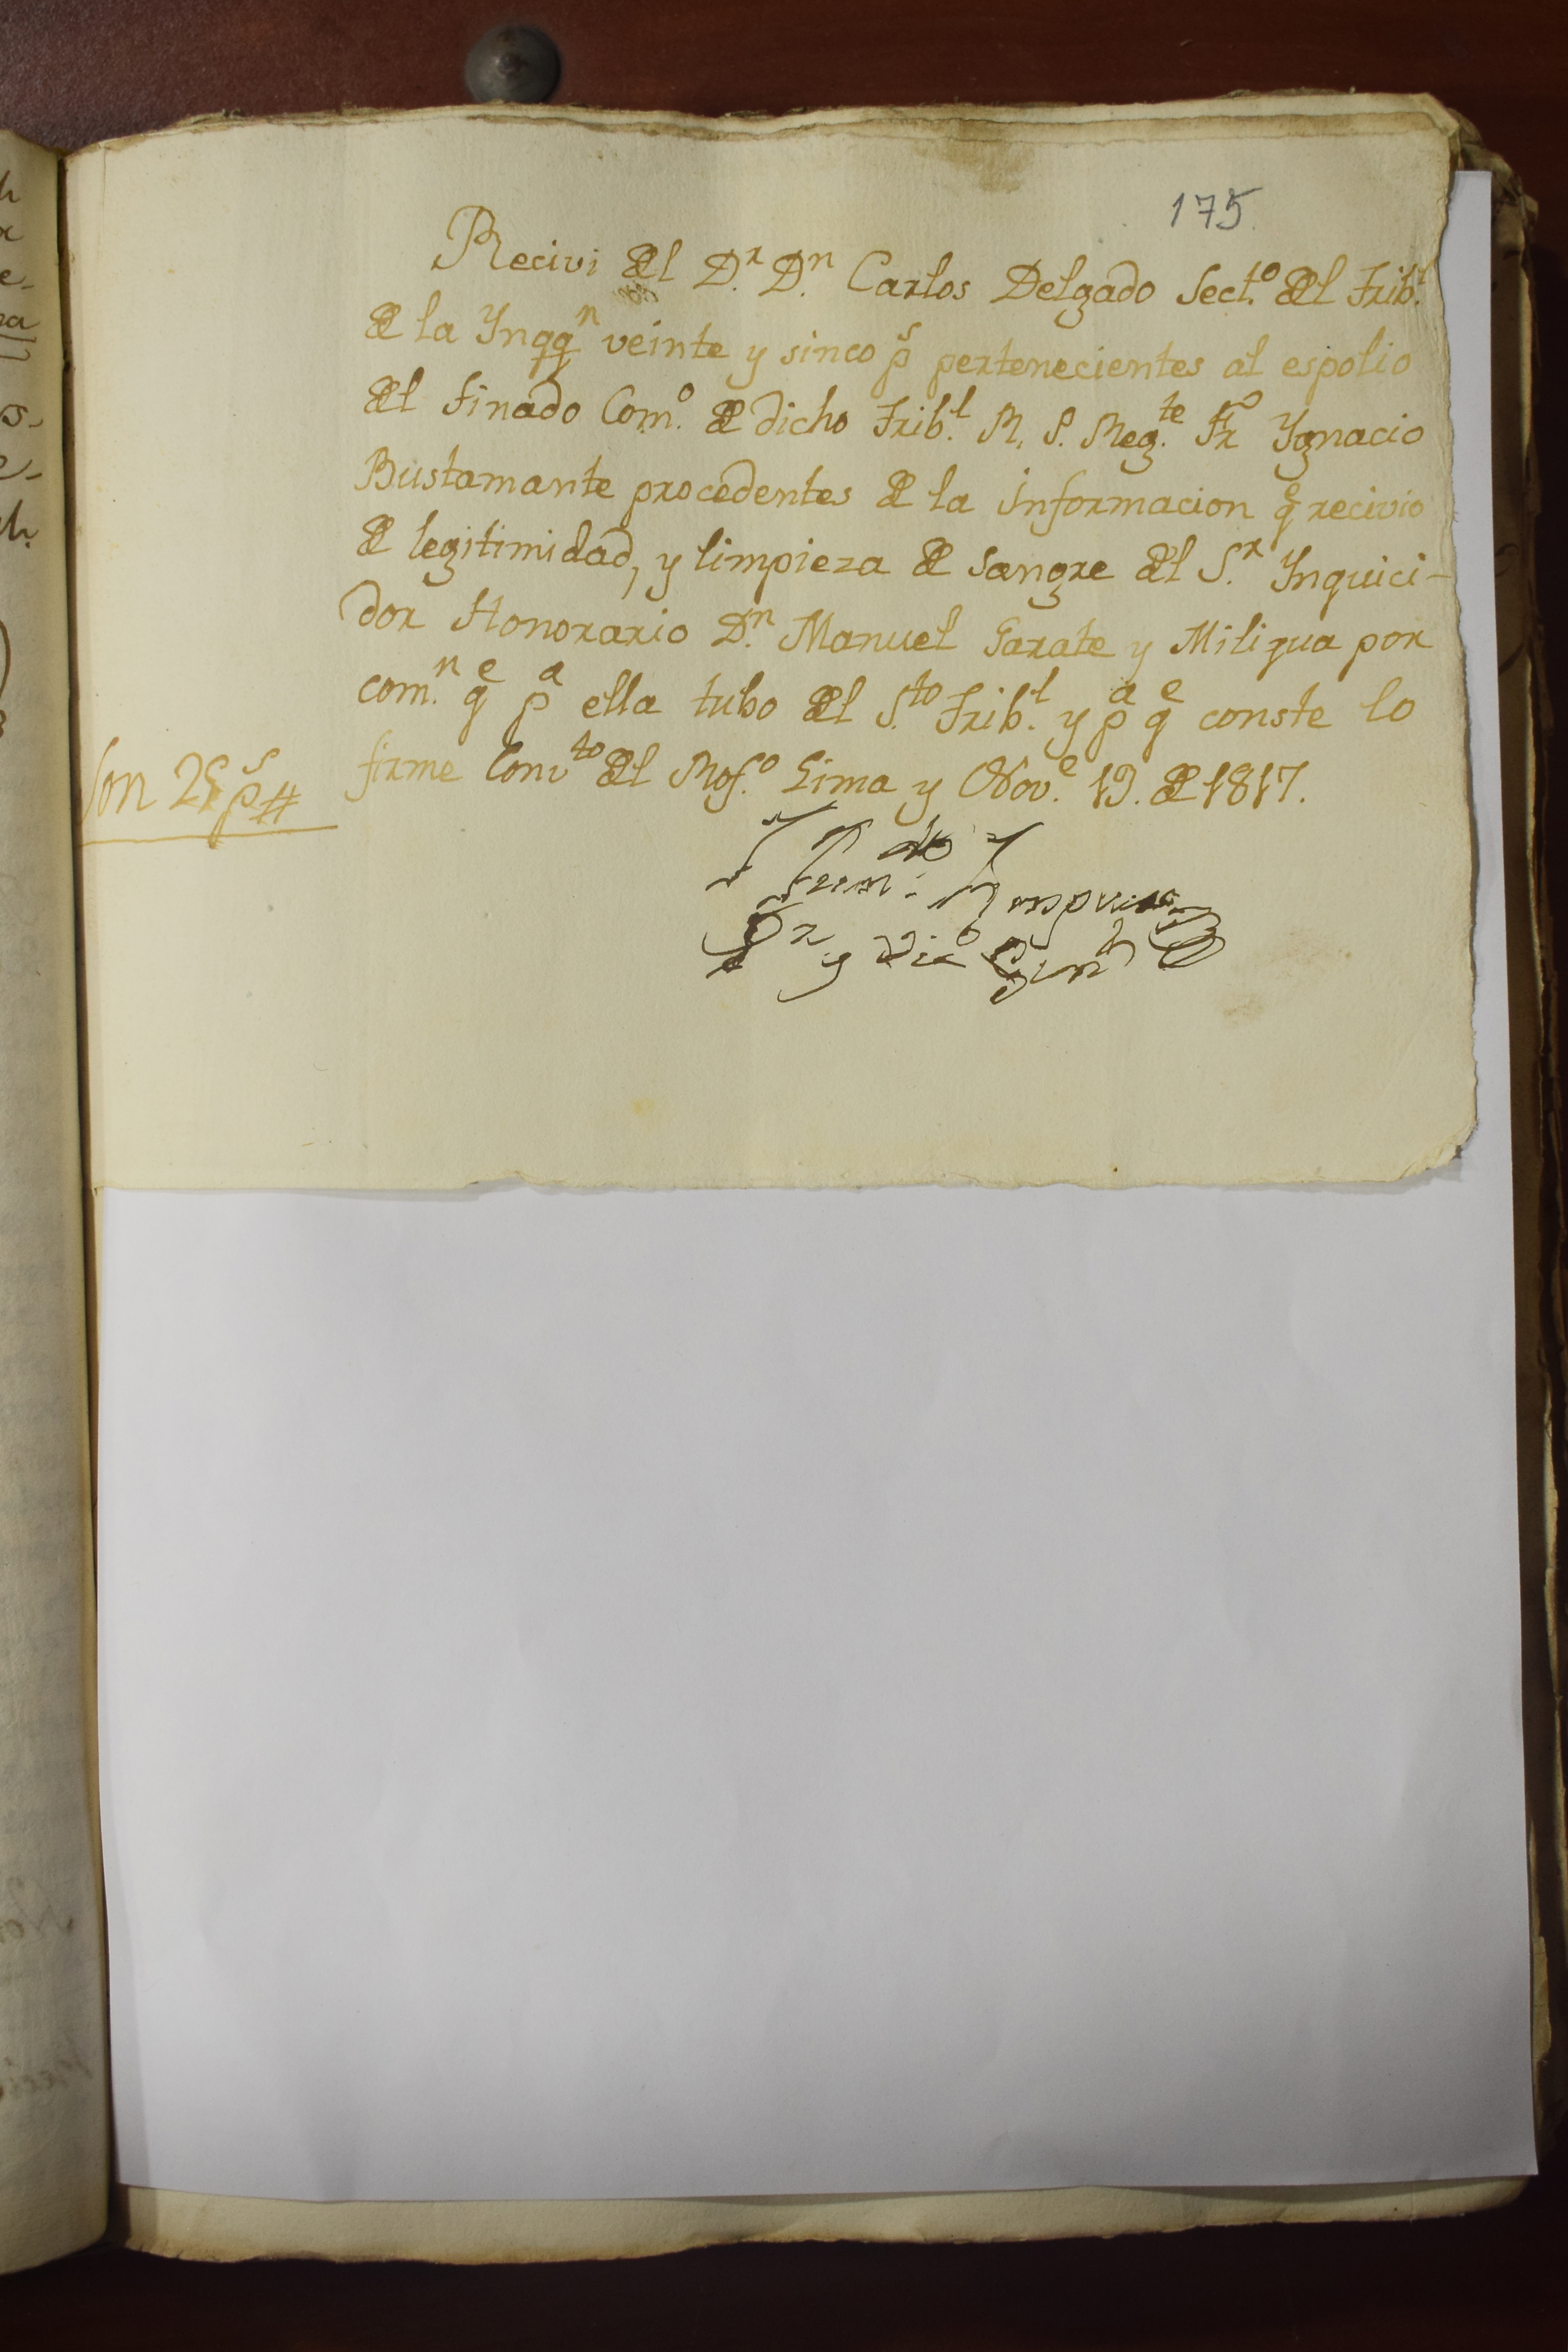 175.
Recivi del D.r D.n Carlos Delgado Sect.o del Trib.l
de la Ynqq.n veinte y sinco p.s pertenecientes al espolio
del finado Com.o de dicho Trib.l R. P. Reg.te Fr Ygnacio
Bustamante procedentes de la informacion q.e recivio
de legitimidad, y limpieza de sangre del S.r Ynquici-
dor Honorario D.n Manuel Garate y Miligua por
com.n q.e p.a ella tubo del S.to Trib.l y p.a q.e conste lo
firme Conv.to del Ros.o Lima y Nov.e 19. de 1817.
Son 25 p.s #